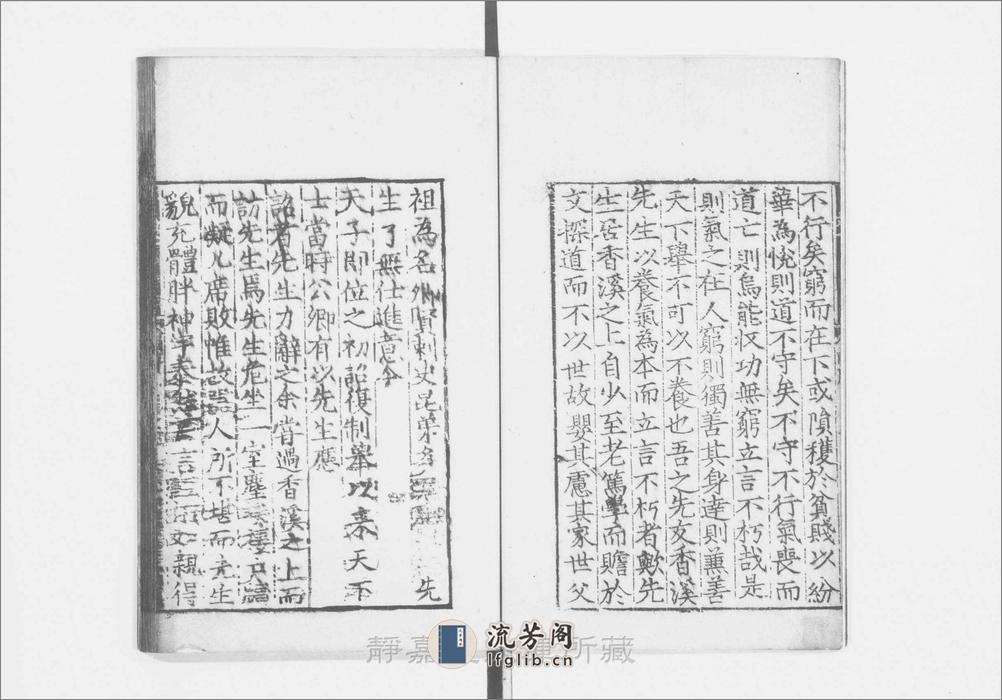 不行矣窮而在下或隕穫於貧賤以紛
華為悅則道不守矣不守不行氣喪而
道亡則烏能收功無窮立言不朽哉是
則氣之在人窮則獨善其身達則兼善
天下舉不可以不養也吾之先友香溪
先生以養氣為本而立言不朽者歟先
生居香溪之上自少至老篤學而贍於
文探道而不以世故嬰其慮其家世父
祖為名卿刺史昆弟多先
生了無仕進意今
天子即位之初詔復制舉以來天下
士當時公卿有以先生應
詔者先生力辭之余嘗過香溪之上而
訪先生焉先生危坐一室塵
而凝几席敗帷故人所不堪而先生
貌充體胖神宇泰然言文親得
流芳阁
lfglib.cn
靜嘉所藏